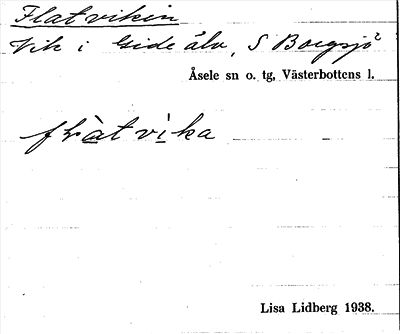 Flatviken
Vik i Gide älv, S Borgsjö
Åsele sn o. tg, Västerbottens l.
flàt vìka
Lisa Lidberg 1938.